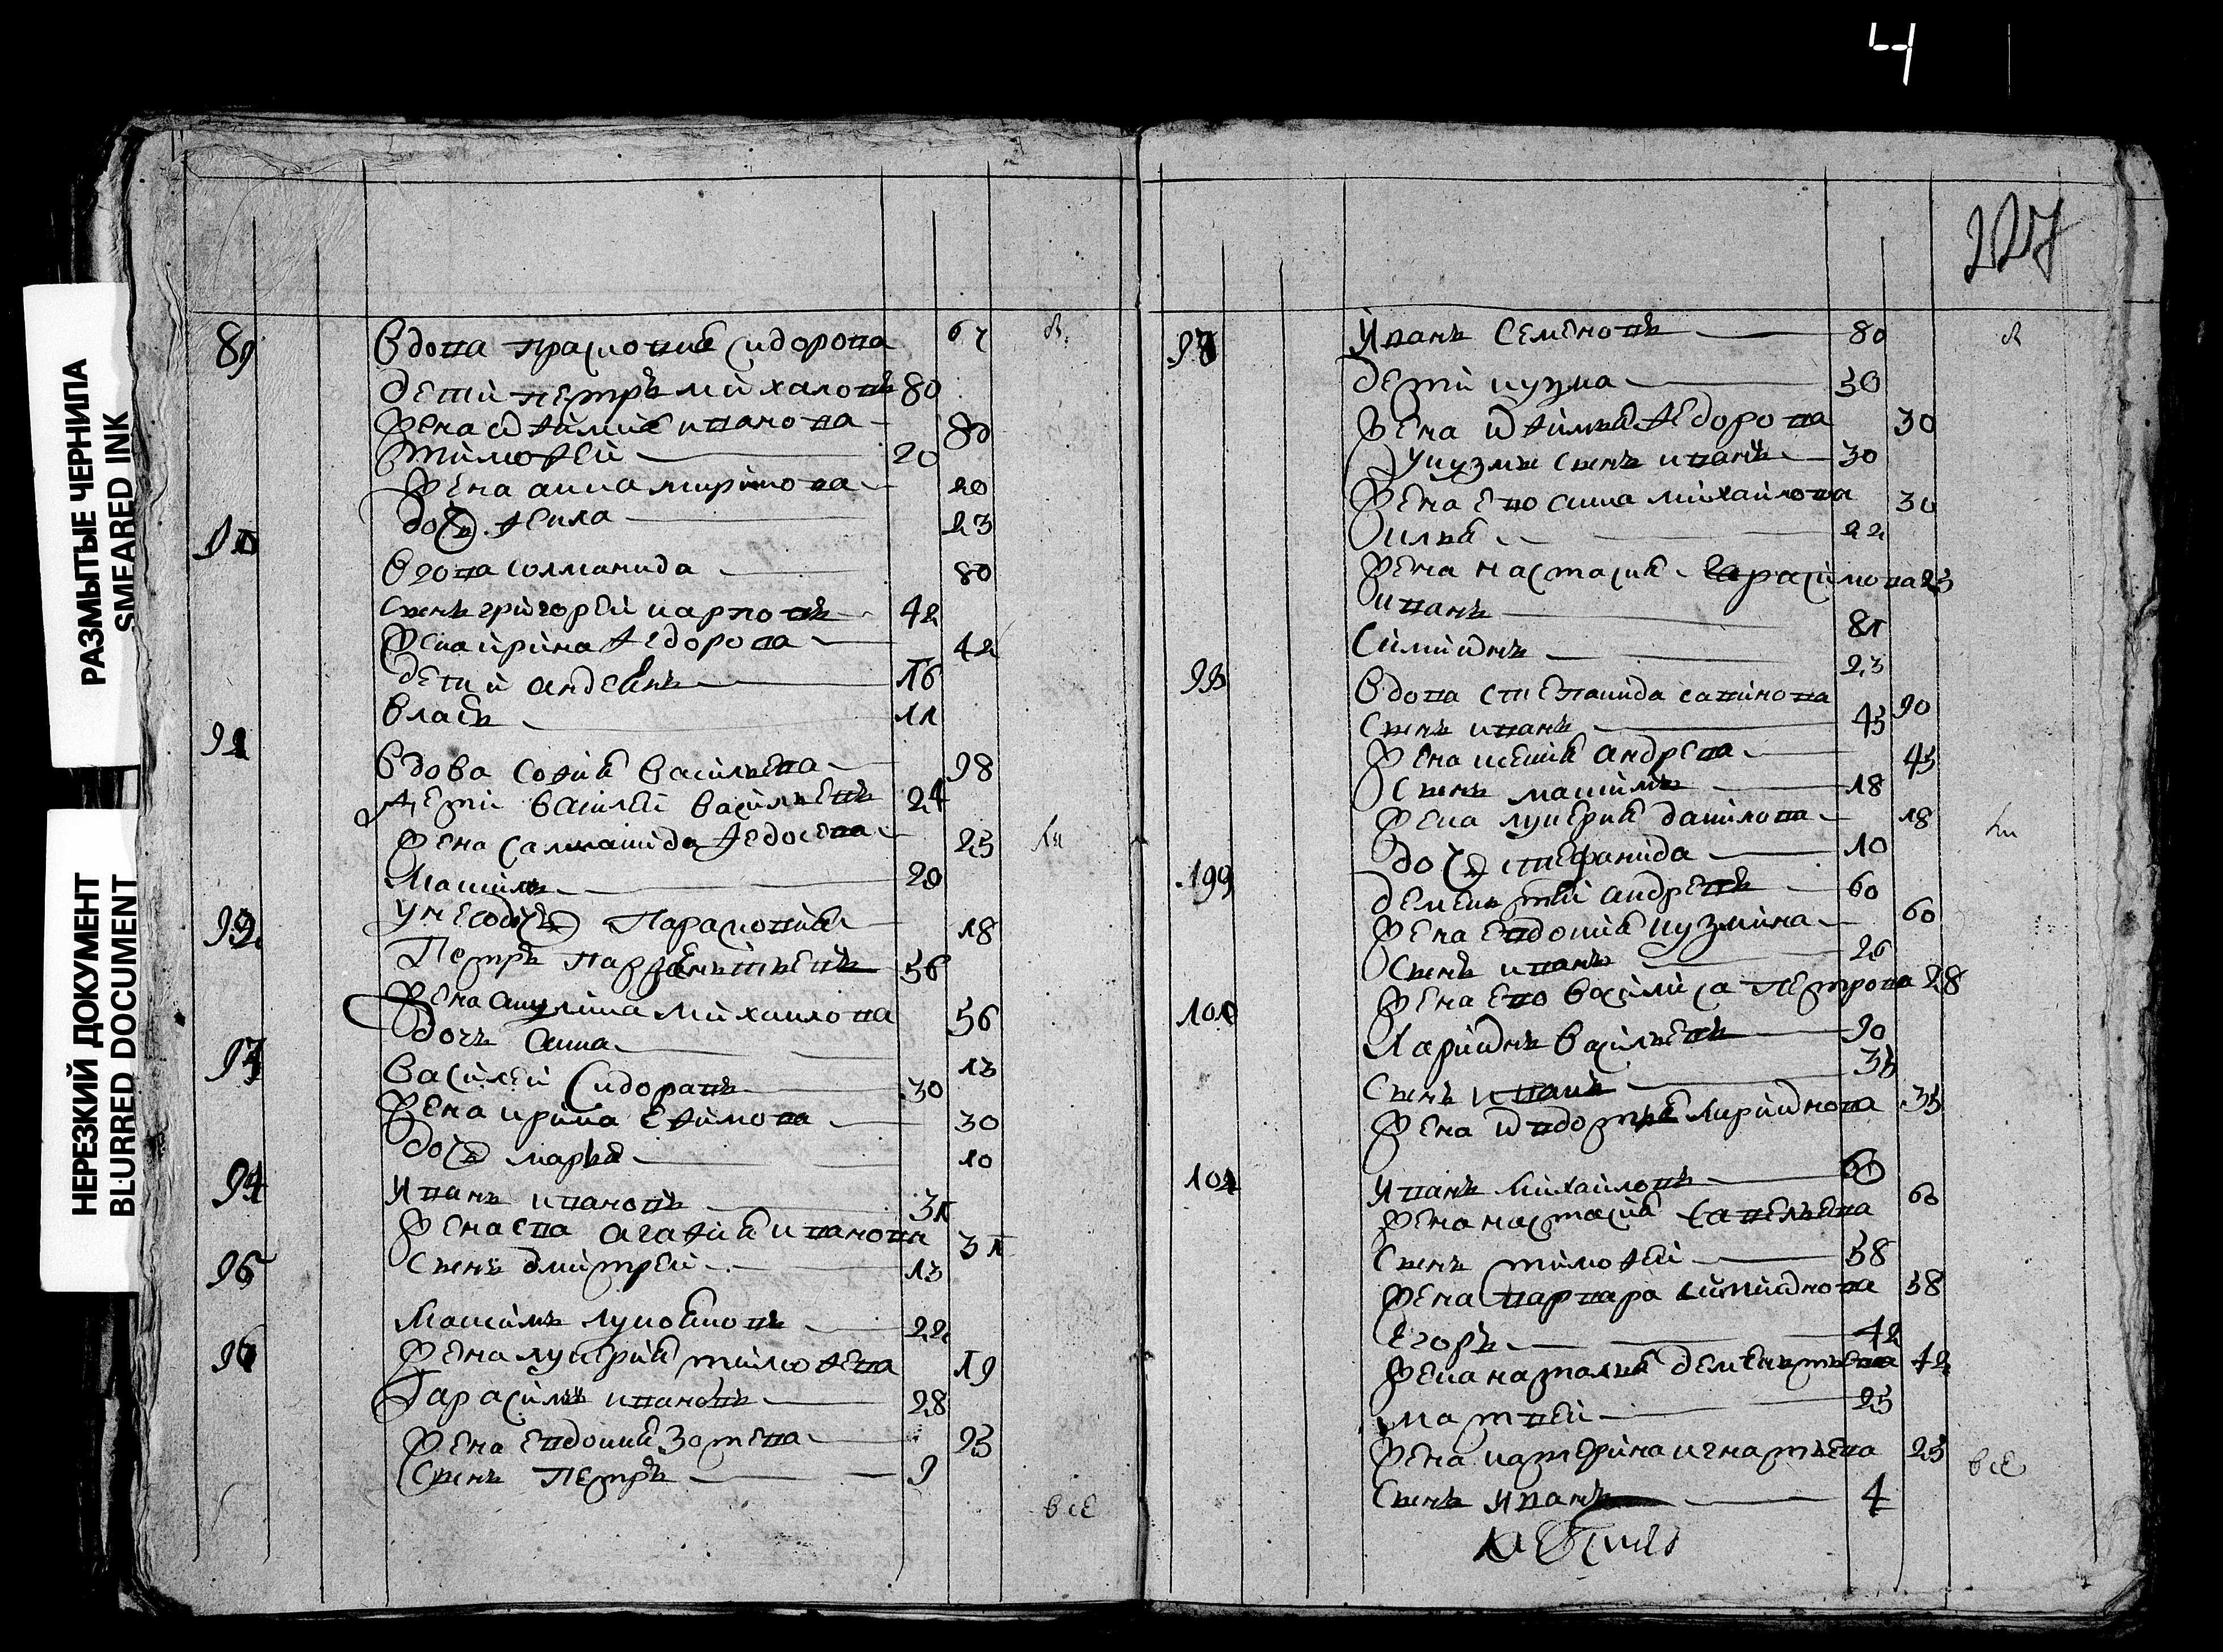 4
227
РАЗМЫТЫЕ ЧЕРНИЛА
SMEARED INK
НЕРЕЗКИЙ ДОКУМЕНТ
BLURRED DOCUMENT
89 Вдова прасковия сидорова 67
дети петръ михаловъ 80
жена офимия иванова 80
тимофей 20
жена анна 20
дочь фекла 23
Вдова соломанида 80
сынъ григорей карповъ 42
жена ирина федорова 42
дети 16
власъ 11
91 Вдова софия васильева 98
дети василей васильевъ 24
жена саламанида 25
максимъ 20
92 у нео дочь Парасковия 18
Петръ парфентьевъ 56
жена акулина михаилова 56
дочь анна 13
93 василей сидоравъ 30
жена ирина ефимова 30
дочь марья 10
94 Иванъ ивановъ 31
жена ева агафия иванова 31
сынъ дмитрей 13
95 Максимъ 22
жена лукерия тимофева 19
96 Гарасимъ ивановъ 28
жена евдокия 25
сынъ Петръ 9
все
Иванъ Семеновъ 80
дети кузма 50
жена офимья федорова 30
у кузмы сынъ иванъ 30
жена ево анна михайлова 30
илья 22
жена настасия гарасимова 23
иванъ
Симионъ 23
Вдова степанида савинова 90
сынъ иванъ 45
жена ксения андрева 45
сынъ максимъ 18
жена лукерия данилова 18
дочь стефанида 10
199 дементей андревъ 60
жена евдокия кузмина 60
сынъ иванъ 26
жена ево василиса петрова 28
Ларионъ васильевъ 90
сынъ иванъ 35
жена овдотья 35
Иванъ михайловъ 60
жена настасия савельева 60
сынъ тимофей 38
жена варвара симионова 38
егоръ 42
жена наталья дементьева 42
матвей 25
жена катерина игнатьева 25
сынъ Иванъ 4
все